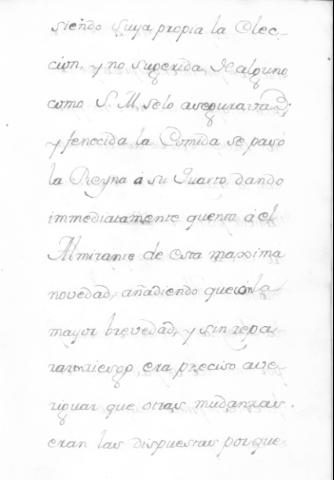 siendo suya propia la Elec-
cion, y no sugerida de alguno
como S. M. se lo aseguraria;
y fenecida la Comida se pasó
la Reyna á su Quarto, dando
immediatamente quenta á el
Almirante de esta maxima
novedad, añadiendo que con la
mayor brevedad, y sin repa
rar riesgo, era preciso ave
riguar que otras mudanzas
eran las dispuestas porque